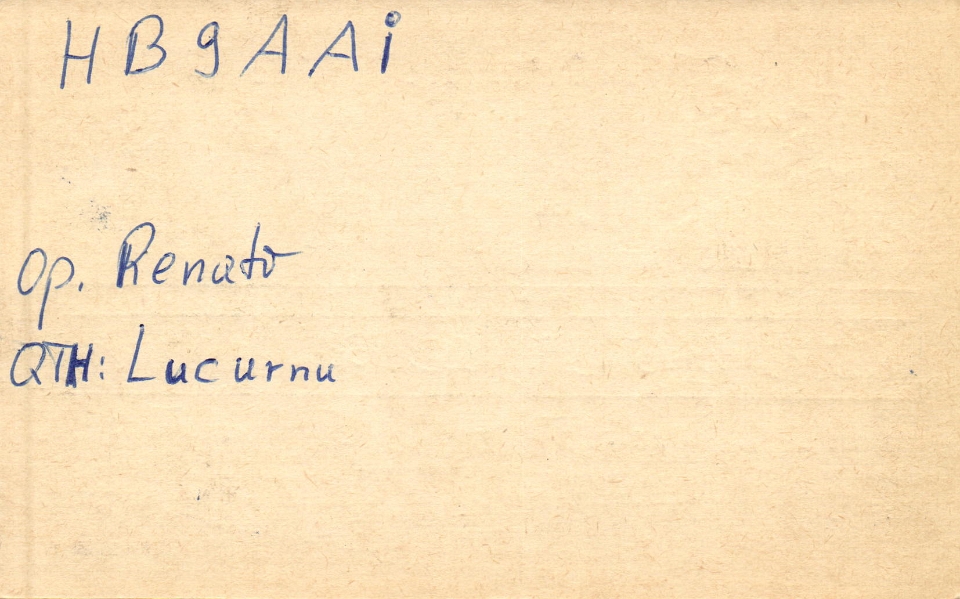 HB9AAi
Op. Renato
QTH: Lucurnu